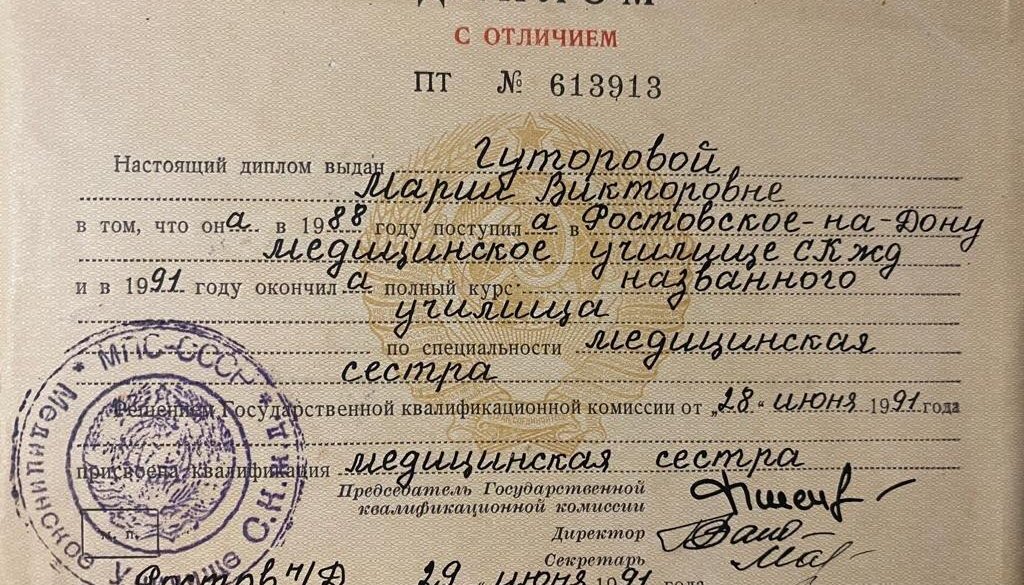 ДИПЛОМ
С ОТЛИЧИЕМ
ПТ № 613913
Настоящий диплом выдан Гуторовой
Марии Викторовне
в том, что она в 1988 году поступила в Ростовское-на-Дону
медицинское училище СКжд
и в 1991 году окончила полный курс названного
училища
по специальности медицинская
сестра
Решением Государственной квалификационной комиссии от „28“ июня 1991 года
присвоена квалификация медицинская сестра
Председатель Государственной
квалификационной комиссии
Директор
Секретарь
м. п.
Ростов н/Д 29 „ июня 1991 года
МПС-СССР
МЕДИЦИНСКОЕ УЧИЛИЩЕ С.К.Ж.Д.